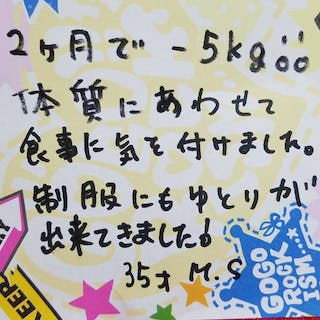 2ヶ月で -5kg
体質にあわせて
食事に気を付けました。
制服にもゆとりが
出来てきました!
35才 M.S
GOGO
ROCK
ISM